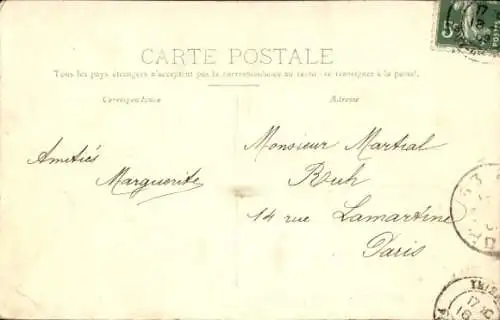 CARTE POSTALE
Tous les pays étrangers n'acceptent pas la correspondance au recto - se renseigner à la poste.
Correspondance
Adresse
Amitiés
Marguerite
Monsieur Martial
Ruh
14 rue Lamartine
Paris
5c
17
18
53
17
18